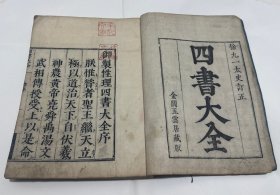 徐九一太史訂正
四書大全
金閶五雲居藏版
御製性理四書大全序
朕惟昔者聖王繼天立
極以道治天下自伏羲
神農黃帝堯舜禹湯文
武相傳授受上以是命